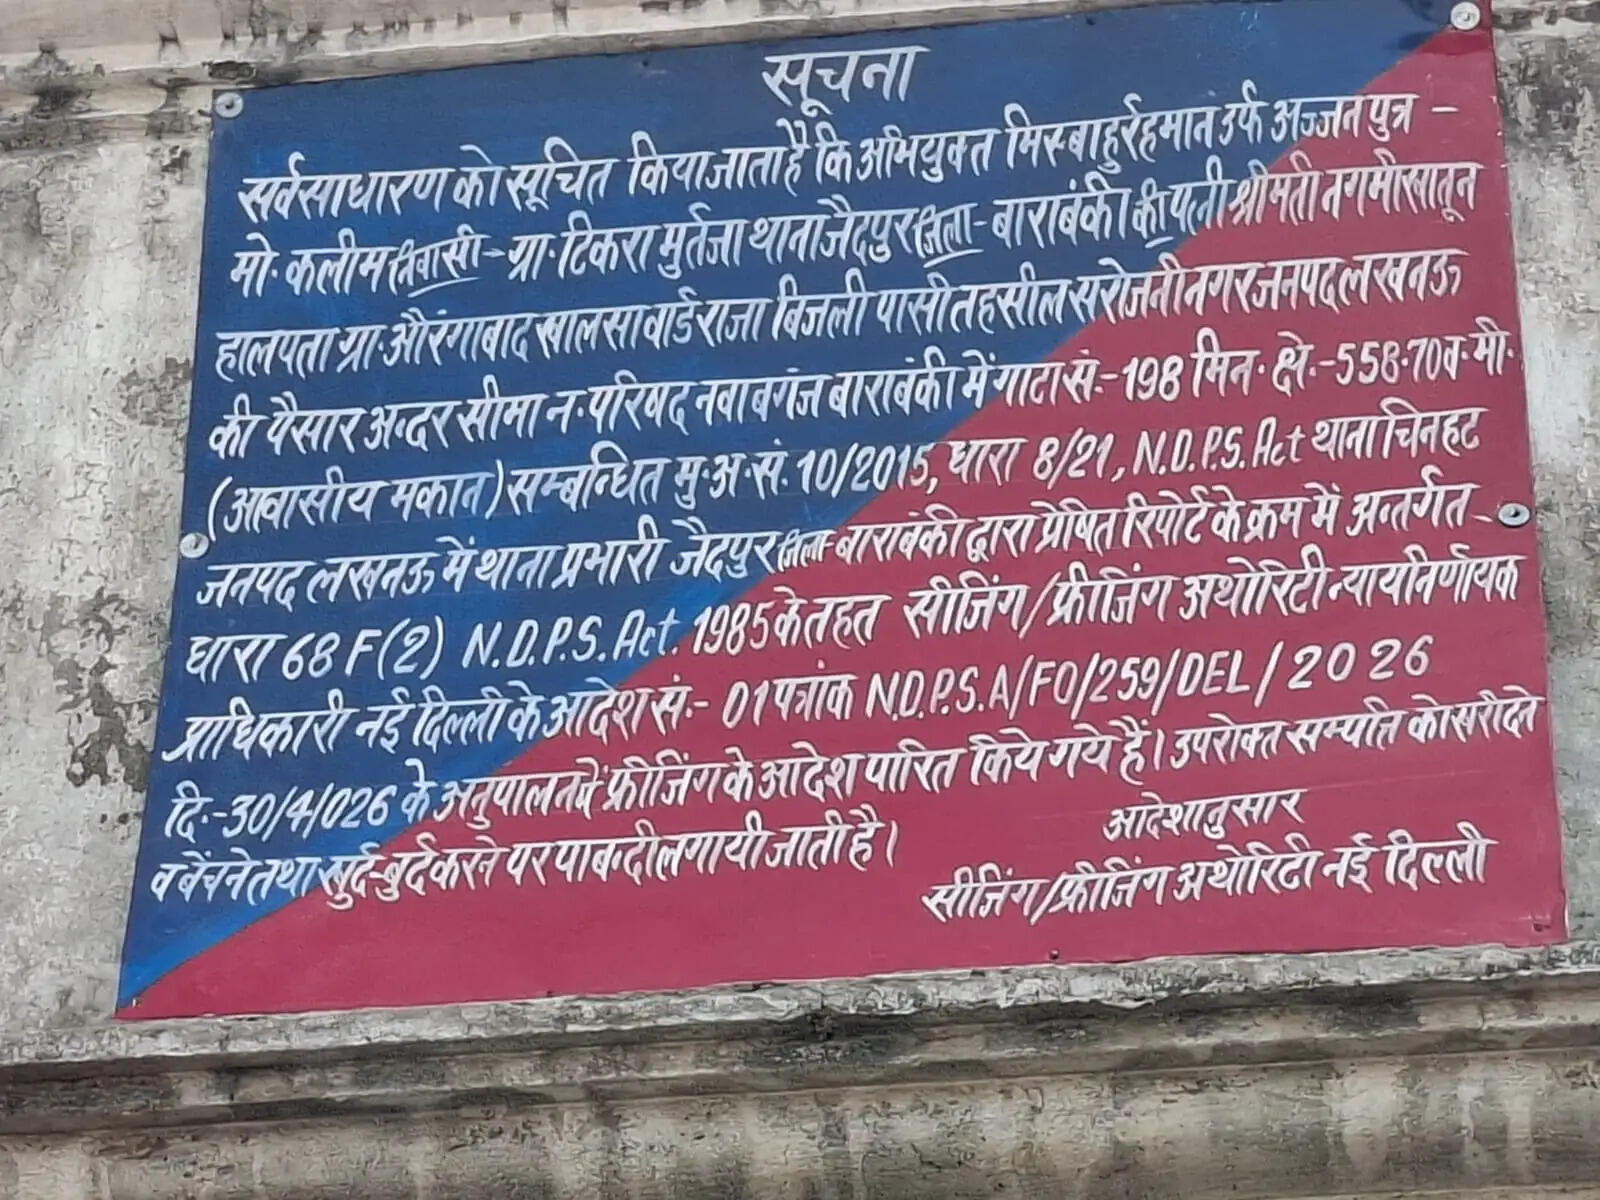 सूचना
सर्वसाधारण को सूचित किया जाता है कि अभियुक्त मिस्बाहुर्रहमान उर्फ अज्जन पुत्र -
मो. कलीम निवासी - ग्रा. टिकरा मुर्तजा थाना जैदपुर जिला - बाराबंकी की पत्नी श्रीमती नगमी खातून
हालपता ग्रा. औरंगाबाद खालसा वार्ड राजा बिजली पासी तहसील सरोजनी नगर जनपद लखनऊ
की पैसार अन्दर सीमा न. परिषद नवाबगंज बाराबंकी में गाटा सं. - 198 मिन. क्षे. - 558.70 व. मी.
(आवासीय मकान) सम्बन्धित मु. अ. सं. 10/2015, धारा 8/21, N.D.P.S. Act थाना चिनहट
जनपद लखनऊ में थाना प्रभारी जैदपुर जिला - बाराबंकी द्वारा प्रेषित रिपोर्ट के क्रम में अन्तर्गत -
धारा 68 F(2) N.D.P.S. Act. 1985 के तहत सीजिंग/फ्रीजिंग अथोरिटी न्यायनिर्णायक
प्राधिकारी नई दिल्ली के आदेश सं. - 01 पत्रांक N.D.P.S.A/FO/259/DEL/2026
दि. - 30/4/026 के अनुपालन में फ्रीजिंग के आदेश पारित किये गये हैं। उपरोक्त सम्पत्ति को खरीदने
व बेंचने तथा खुर्द-बुर्द करने पर पाबन्दी लगायी जाती है।
आदेशानुसार
सीजिंग/फ्रीजिंग अथोरिटी नई दिल्ली